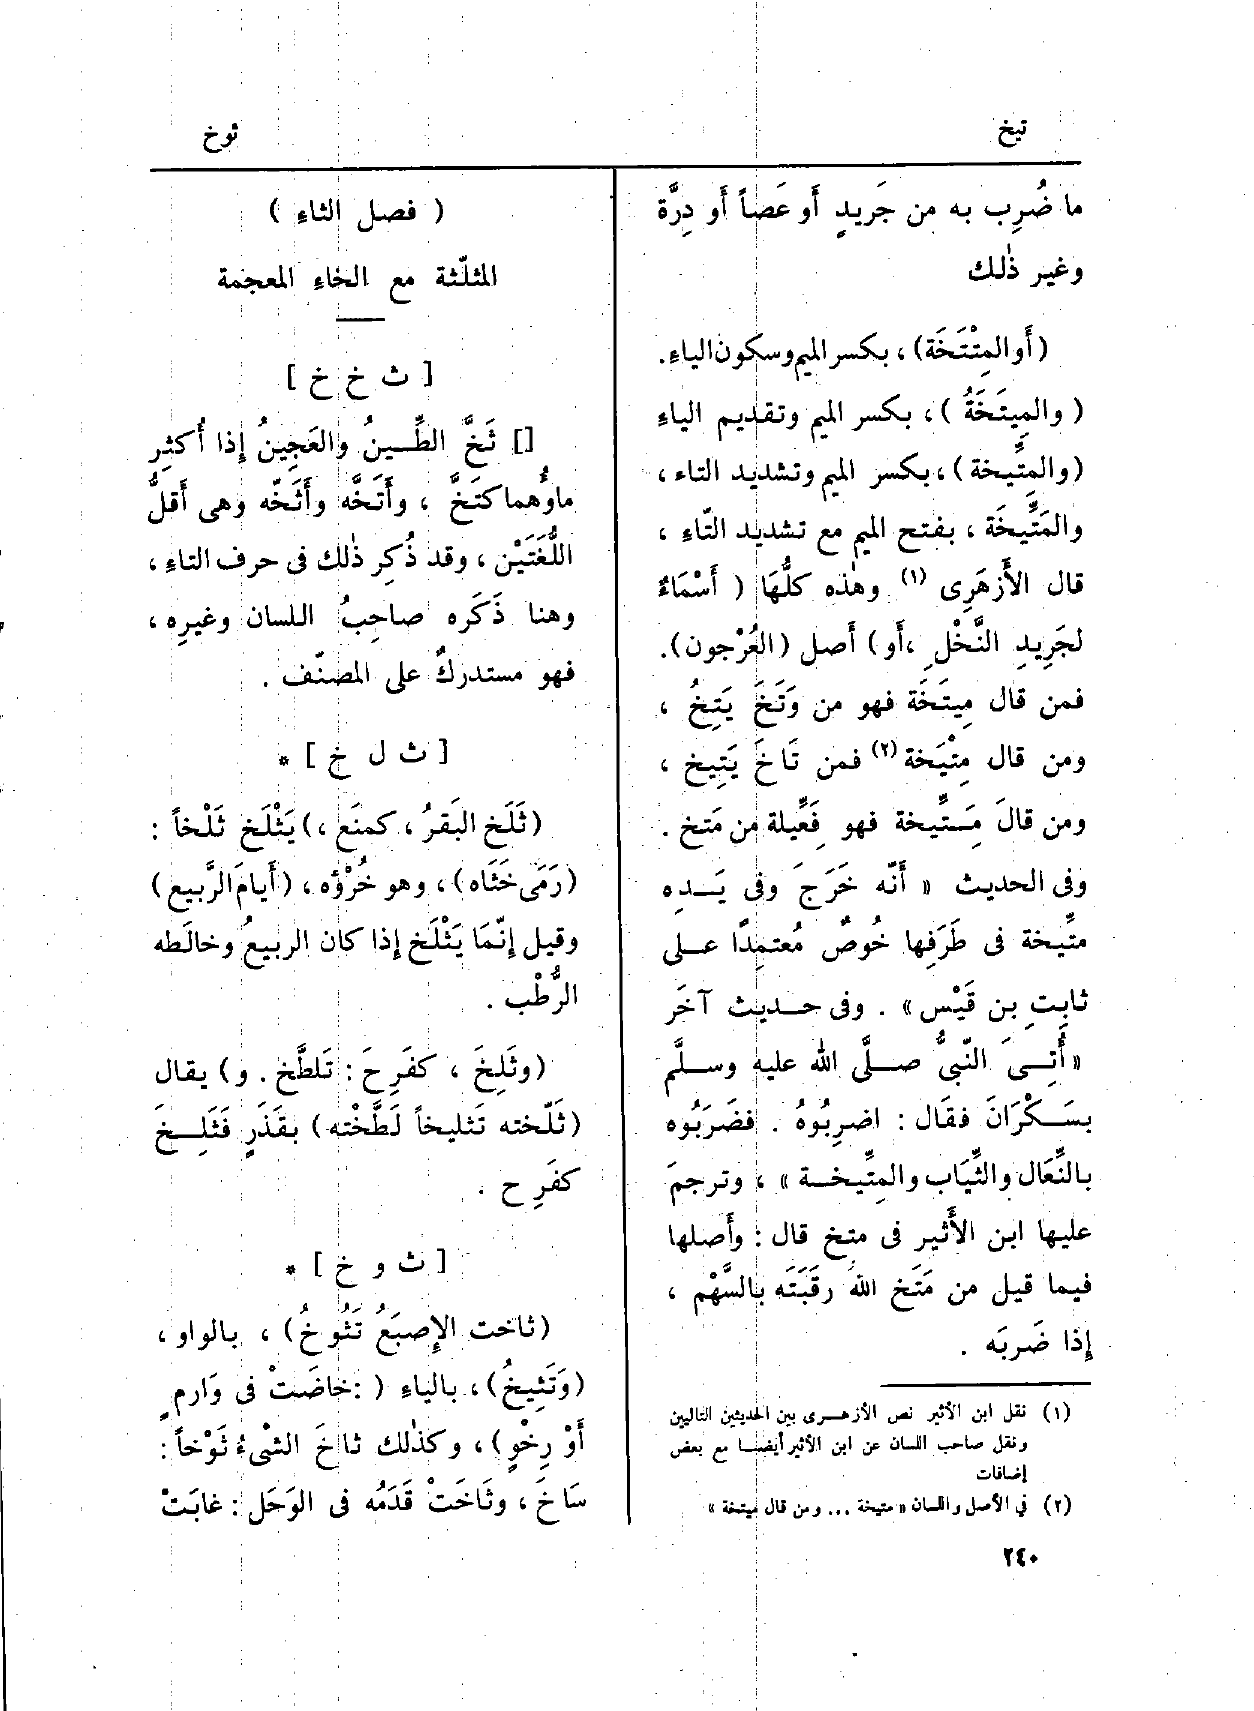 تيخ
ثوخ
ما ضُرِب به من جَريدٍ أَو عَصاً أَو دِرَّة
وغير ذٰلك
(أَو المِتْتَخَة)، بكسر الميم وسكون الياءِ.
(والمِيتَخَةُ)، بكسر الميم وتقديم الياءِ
(والمِتِّيخة)، بكسر الميم وتشديد التاء،
والمَتِّيخَة، بفتح الميم مع تشديد التّاءِ،
قال الأَزهَرِى (١) وهٰذه كلُّهَا (أَسْمَاءٌ
لجَرِيدِ النَّخْلِ، أَو) أَصل (العُرْجون).
فمن قال مِيتَخَة فهو من وَتَخَ يَتِخُ،
ومن قال مِتْيَخة (٢) فمن تَاخَ يَتِيخ،
ومن قالَ مَـتِّيخة فهو فَعِّيلة من مَتخ.
وفى الحديث «أَنّه خَرَجَ وفى يَـده
متِّيخة فى طَرَفِها خُوصٌ مُعتمِدًا عـلى
ثابِتِ بن قَيْس». وفى حـديث آخَر
«أُتِـىَ النّبىُّ صـلَّى الله عليه وسـلَّم
بسَـكْرَانَ فقَال: اضرِبُوهُ. فضَرَبُوه
بالنِّعَال والثِّيَاب والمِتِّيخـة»، وترجمَ
عليها ابن الأَثير فى متخ قال: وأَصلها
فيما قيل من مَتَخ اللهُ رقَبَتَه بالسَّهْم،
إِذا ضَربَه.
(١) نقل ابن الأثير نص الأزهـرى بين الحديثين التاليين
ونقل صاحب اللسان عن ابن الأثير أيضـا مع بعض
إضافات
(٢) في الأصل واللسان «متيخة ... ومن قال ميتخة»
(فصل الثاءِ)
المثلّثة مع الخاءِ المعجمة
[ ث خ خ ]
[] ثَخَّ الطِّـينُ والعَجِينُ إِذا أُكثِر
ماؤُهما كتَخَّ، وأَتَخَّه وأَثَخّه وهى أَقلُّ
اللُّغَتَيْن، وقد ذُكِر ذٰلك فى حرف التاءِ،
وهنا ذَكَره صاحِبُ اللسان وغيرِه،
فهو مستدركٌ على المصنّف.
[ ث ل خ ] *
(ثَلَخ البَقرُ، كمنَع،) يَثْلَخ ثَلْخاً:
(رَمَى خَثَاه)، وهو خُرْؤُه، (أَيامَ الرَّبيع)
وقيل إِنّمَا يَثْلَخ إِذا كان الربيعُ وخالَطه
الرُّطْب.
(وثَلِخَ، كفَرِحَ: تَلطَّخ. و) يقال
(ثَلّخته تَثليخاً لَطَّخْته) بقَذَرٍ فَثَلِـخَ
كفَرِح.
[ ث و خ ] *
(ثاخت الإِصبَعُ تَثُوخُ)، بالواو،
(وَتَثِيخُ)، بالياءِ (: خاضَتْ فى وَارمٍ
أَوْ رِخْوٍ)، وكذٰلك ثاخَ الشىْءُ ثَوْخاً:
سَاخَ، وثَاخَتْ قَدَمُه فى الوَحَل: غابَتْ
٢٤٠